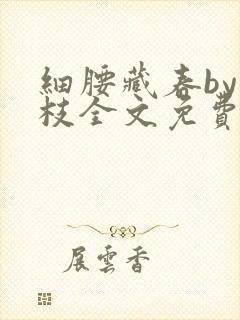 細腰藏春by
枝全文免費
展雲香